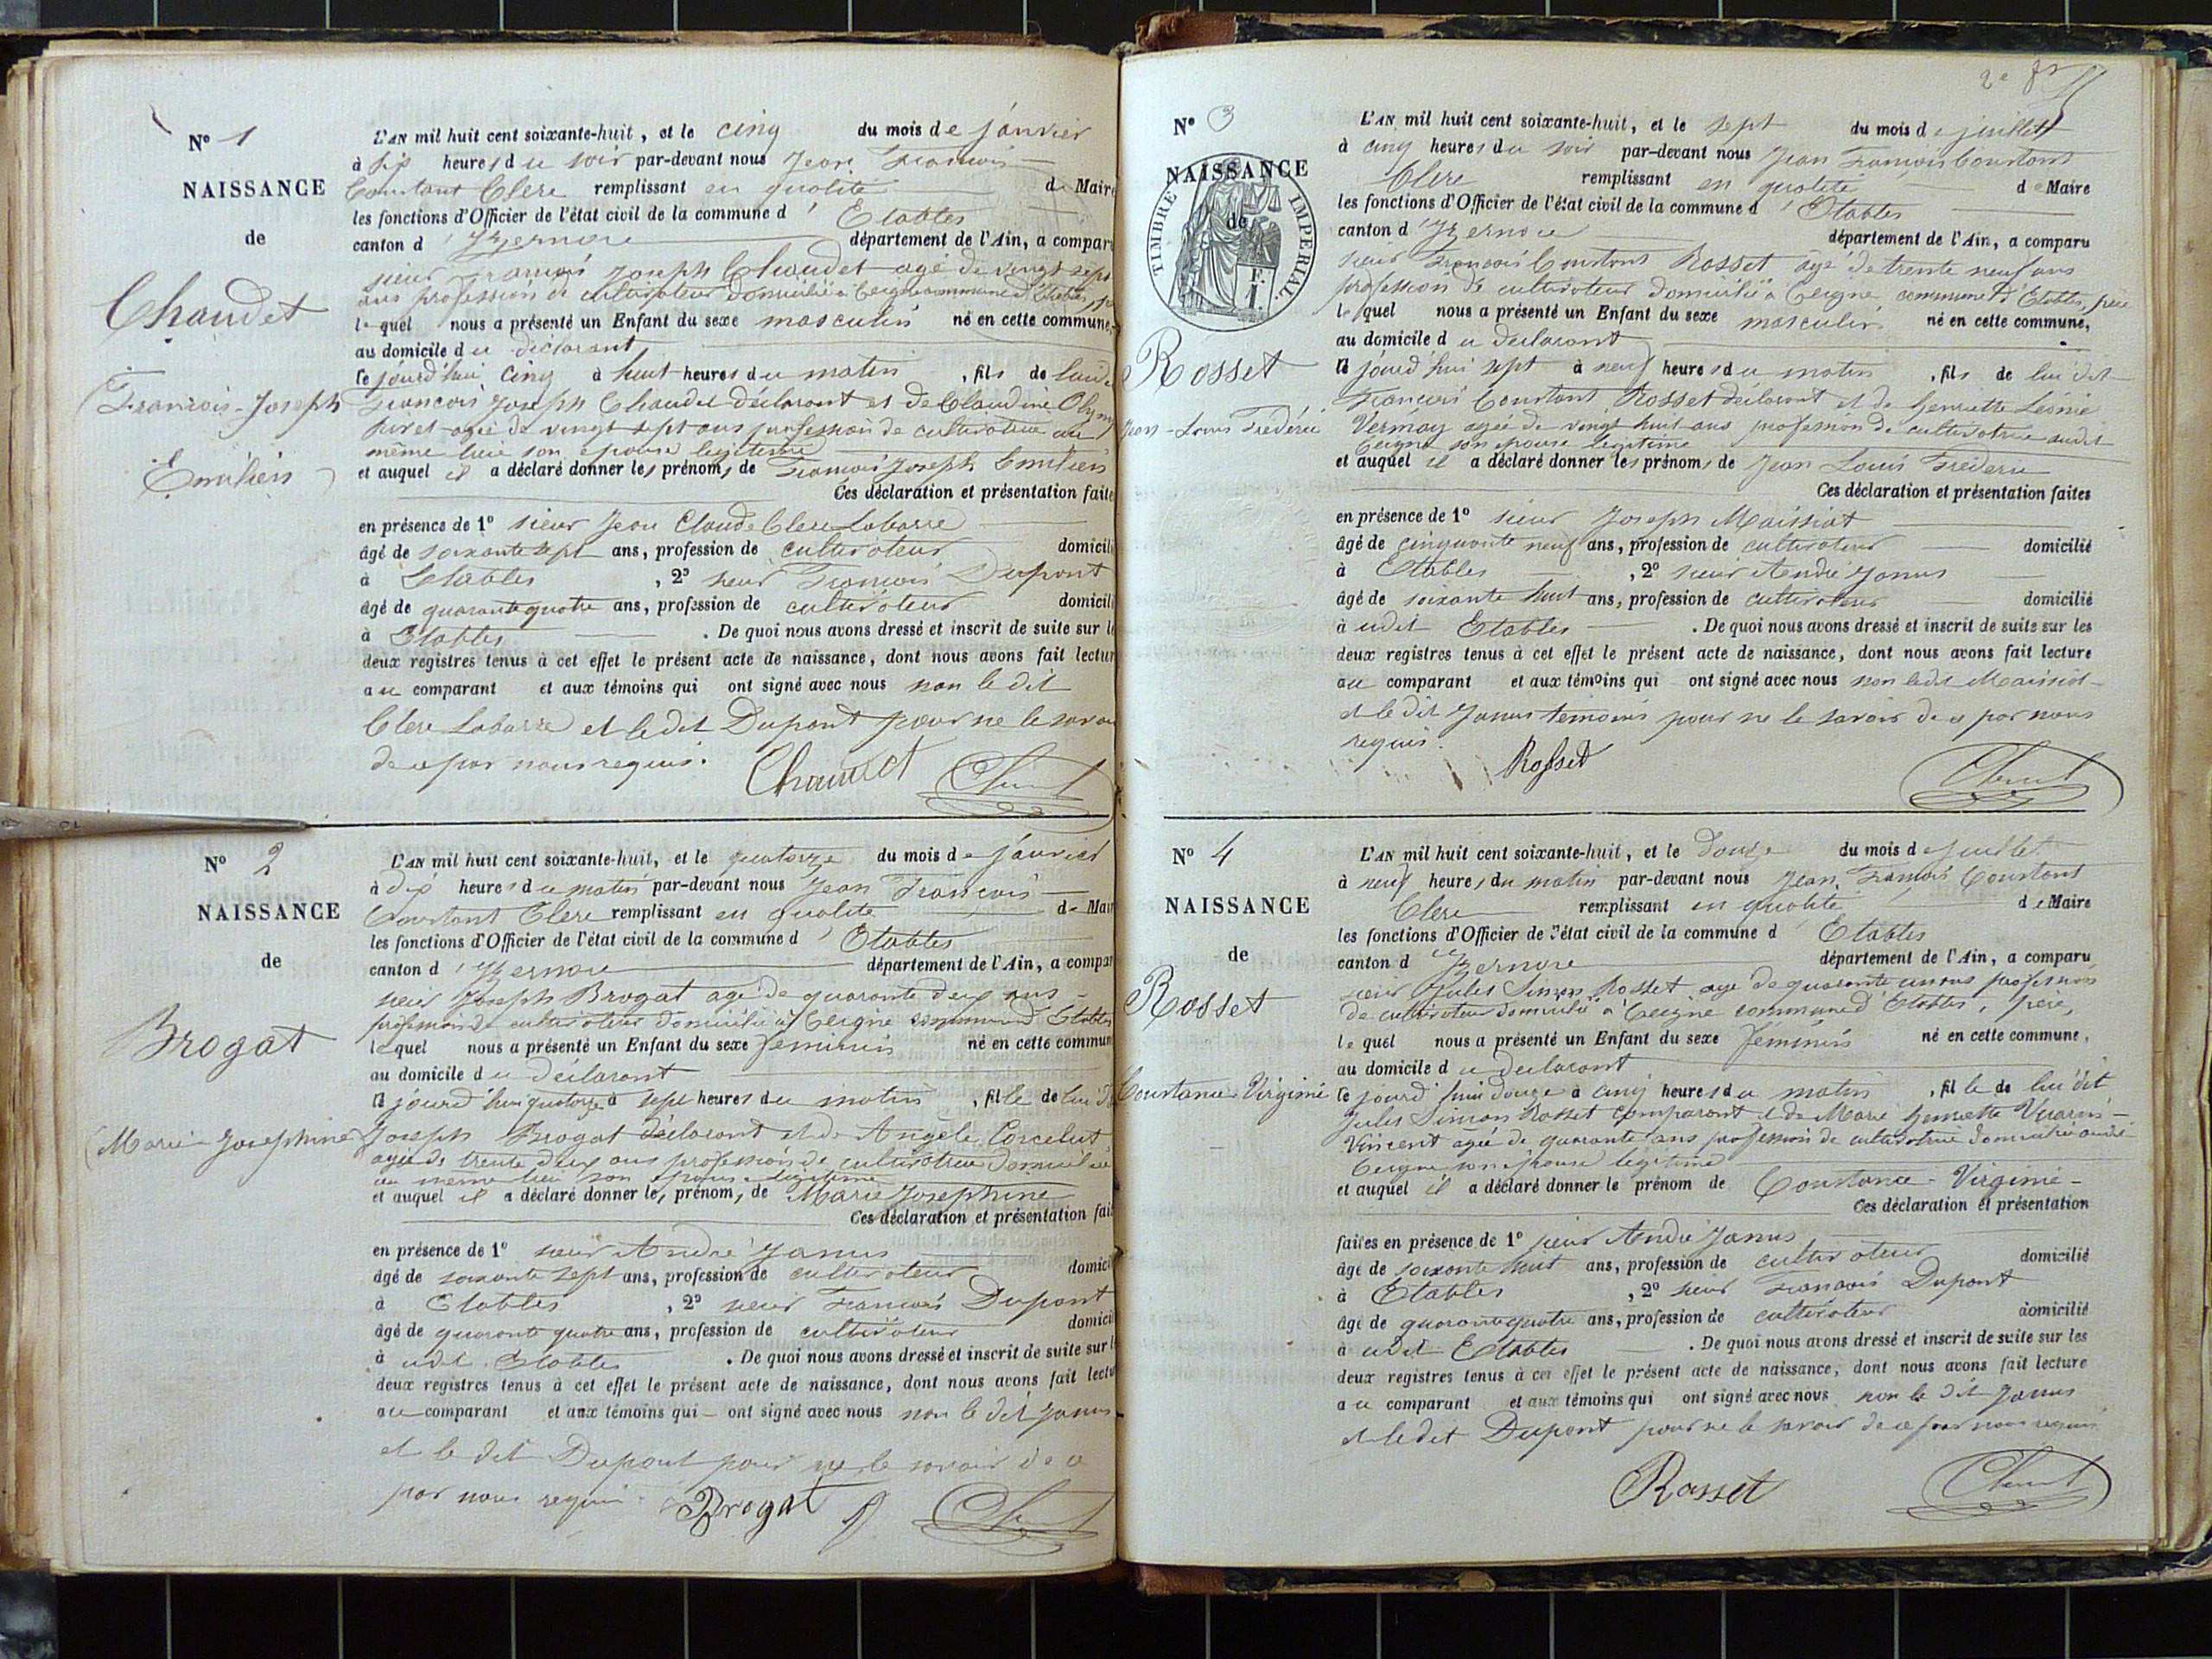 Nº 1
NAISSANCE
de
Chaudet
François-Joseph
Emilien
L'AN mil huit cent soixante-huit, et le cinq du mois de janvier
à six heures du soir par-devant nous Jean François
Constant Clerc remplissant en qualité de Maire
les fonctions d'Officier de l'état civil de la commune d' Etables
canton d' Izernore département de l'Ain, a compar
sieur François Joseph Chaudet agé de vingt sept
ans profession de cultivateur domicilié à Ceigne commune d'Etables
lequel nous a présenté un Enfant du sexe masculin né en cette commune,
au domicile du déclarant
le jourd'hui cinq à huit heures du matin, fils de
François Joseph Chaudet déclarant et de Claudine Olym
agée de vingt sept ans profession de cultivatrice au
même lieu son épouse légitime
et auquel il a déclaré donner les prénoms de François Joseph Emilien
Ces déclaration et présentation faite
en présence de 1º sieur Jean Claude Clerc Labarre
âgé de soixante sept ans, profession de cultivateur domicili
à Etables, 2º sieur François Dupont
âgé de quarante quatre ans, profession de cultivateur domicili
à Etables. De quoi nous avons dressé et inscrit de suite sur le
deux registres tenus à cet effet le présent acte de naissance, dont nous avons fait lectur
au comparant et aux témoins qui ont signé avec nous non le dit
Clerc Labarre et le dit Dupont pour ne le savoi
de ce par nous requis.
Chaudet
Nº 2
NAISSANCE
de
Brogat
Marie-Josephine
L'AN mil huit cent soixante-huit, et le quatorze du mois de janvier
à dix heures du matin par-devant nous Jean François
Constant Clerc remplissant en qualité de Mai
les fonctions d'Officier de l'état civil de la commune d' Etables
canton d' Izernore département de l'Ain, a compar
sieur Joseph Brogat agé de quarante deux ans
profession de cultivateur domicilié à Ceigne commune d'Etables
lequel nous a présenté un Enfant du sexe féminin né en cette commun
au domicile du déclarant
le jourd'hui quatorze à sept heures du matin, fille de lui dit
Joseph Brogat déclarant et de Angèle Corcelut
agée de trente deux ans profession de cultivatrice domiciliée
au même lieu son épouse légitime
et auquel il a déclaré donner les prénoms de Marie Josephine
Ces déclaration et présentation fai
en présence de 1º sieur André Janus
âgé de soixante sept ans, profession de cultivateur domici
à Etables, 2º sieur François Dupont
âgé de quarante quatre ans, profession de cultivateur domici
à udit Etables. De quoi nous avons dressé et inscrit de suite sur l
deux registres tenus à cet effet le présent acte de naissance, dont nous avons fait lectu
au comparant et aux témoins qui ont signé avec nous non le dit Janus
et le dit Dupont pour ne le savoir de ce
par nous requis.
Brogat
2e
Nº 3
NAISSANCE
de
TIMBRE IMPERIAL
Rosset
Jean-Louis Frédéric
L'AN mil huit cent soixante-huit, et le sept du mois de juillet
à cinq heures du soir par-devant nous Jean François Constant
Clerc remplissant en qualité de Maire
les fonctions d'Officier de l'état civil de la commune d' Etables
canton d' Izernore département de l'Ain, a comparu
sieur François Constant Rosset agé de trente neuf ans
profession de cultivateur domicilié à Ceigne commune d'Etables, père
lequel nous a présenté un Enfant du sexe masculin né en cette commune,
au domicile du déclarant
le jourd'hui sept à neuf heures du matin, fils de lui dit
François Constant Rosset déclarant et de Henriette Léonie
Vermay agée de vingt huit ans profession de cultivatrice audit
Ceigne son épouse légitime
et auquel il a déclaré donner les prénoms de Jean Louis Frédéric
Ces déclaration et présentation faites
en présence de 1º sieur Joseph Maissiat
âgé de cinquante neuf ans, profession de cultivateur domicilié
à Etables, 2º sieur André Janus
âgé de soixante huit ans, profession de cultivateur domicilié
à udit Etables. De quoi nous avons dressé et inscrit de suite sur les
deux registres tenus à cet effet le présent acte de naissance, dont nous avons fait lecture
au comparant et aux témoins qui ont signé avec nous non le dit Maissiat
et le dit Janus temoins pour ne le savoir de ce par nous
requis.
Rosset
Nº 4
NAISSANCE
de
Rosset
Constance Virginie
L'AN mil huit cent soixante-huit, et le douze du mois de juillet
à neuf heures du matin par-devant nous Jean François Constant
Clerc remplissant en qualité de Maire
les fonctions d'Officier de l'état civil de la commune d' Etables
canton d' Izernore département de l'Ain, a comparu
sieur Jules Simon Rosset agé de quarante un ans profession
de cultivateur domicilié à Ceigne commune d'Etables, père,
lequel nous a présenté un Enfant du sexe féminin né en cette commune,
au domicile du déclarant
le jourd'hui douze à cinq heures du matin, fille de lui dit
Jules Simon Rosset comparant et de Marie Henriette Vuarin
Vincent agée de quarante ans profession de cultivatrice domiciliée audit
Ceigne son épouse légitime
et auquel il a déclaré donner le prénom de Constance Virginie
Ces déclaration et présentation
faites en présence de 1º sieur André Janus
âgé de soixante huit ans, profession de cultivateur domicilié
à Etables, 2º sieur François Dupont
âgé de quarante quatre ans, profession de cultivateur domicilié
à udit Etables. De quoi nous avons dressé et inscrit de suite sur les
deux registres tenus à cet effet le présent acte de naissance, dont nous avons fait lecture
au comparant et aux témoins qui ont signé avec nous non le dit Janus
et le dit Dupont pour ne le savoir de ce par nous requis
Rosset